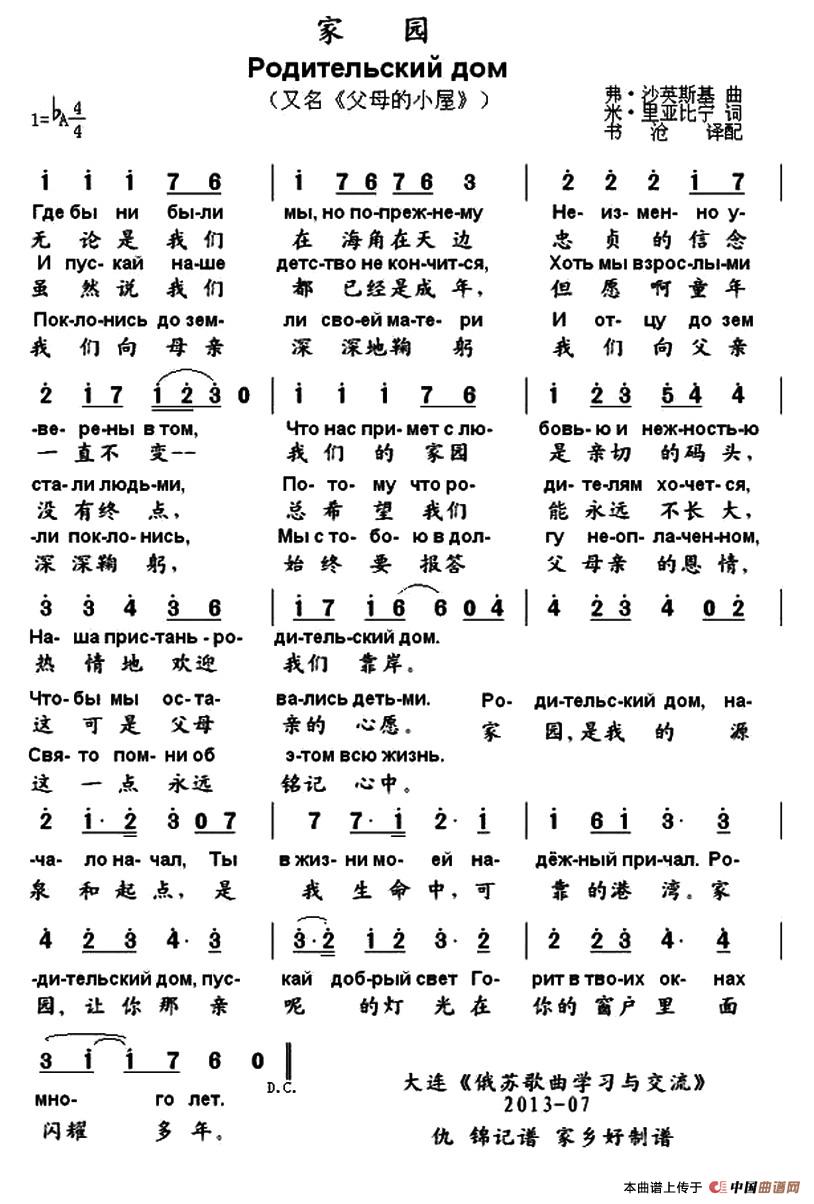 家 园
Родительский дом
（又名《父母的小屋》）
弗·沙英斯基 曲
米·里亚比宁 词
书 沧 译配
1=♭A 4/4
i i i 7 6 | i 7 6 7 6 3 | 2 2 2 i 7 |
Где бы ни бы-ли мы, но по-преж-не-му Не- из-мен- но у-
无 论 是 我 们 在 海 角 在 天 边 忠 贞 的 信 念
И пус-кай на-ше детс-тво не кон-чит-ся, Хоть мы взрос-лы-ми
虽 然 说 我 们 都 已经 是 成 年， 但 愿 啊 童 年
Пок-ло-нись до зем- ли сво-ей ма-те- ри И от- цу до зем
我 们 向 母 亲 深 深地鞠 躬 我 们 向 父 亲
2 i 7 i 2 3 0 | i i i 7 6 | i 2 3 5 4 4 |
-ве- ре-ны в том, Что нас при-мет с лю- бовь-ю и неж-ность-ю
一 直 不 变-- 我 们 的 家园 是 亲切 的 码 头，
ста-ли людь-ми, По- то- му что ро- ди- те-лям хо-чет-ся,
没 有 终 点， 总 希 望 我 们 能 永远 不 长 大，
-ли пок-ло-нись, Мы с то- бо- ю в дол- гу не-опл-ла-чен-ном,
深 深鞠 躬， 始 终 要 报答 父 母亲 的恩 情，
3 3 4 3 6 | i 7 i 6 6 0 4 | 4 2 3 4 0 2 |
На- ша прис-тань - ро- ди-тель-ский дом.
热 情 地 欢迎 我们 靠 岸。
Что-бы мы ос- та- ва-лись деть-ми. Ро- ди-тельс-кий дом, на-
这 可 是 父母 亲 的 心愿。 家 园，是 我 的 源
Свя-то пом-ни об э-том всю жизнь.
这 一 点 永远 铭记 心中。
2 i· 2 3 0 7 | 7 7· i 2· i | i 6 i 3· 3 |
-ча- ло на-чал, Ты в жиз- ни мо- ей на- дёж-ный при-чал. Ро-
泉 和 起 点， 是 我 生 命 中， 可 靠 的 港 湾。家
4 2 3 4· 3 | 3·2 i 2 3· 2 | 2 2 3 4· 4 |
-ди-тельский дом, пус- кай доб-рый свет Го- рит в тво-их ок- нах
园， 让 你 那 亲 呢 的 灯 光 在 你的 窗户 里 面
3 i i 7 6 0 ‖
D.C.
мно- го лет.
闪耀 多 年。
大连《俄苏歌曲学习与交流》
2013-07
仇 锦记谱 家乡好制谱
本曲谱上传于 中国曲谱网